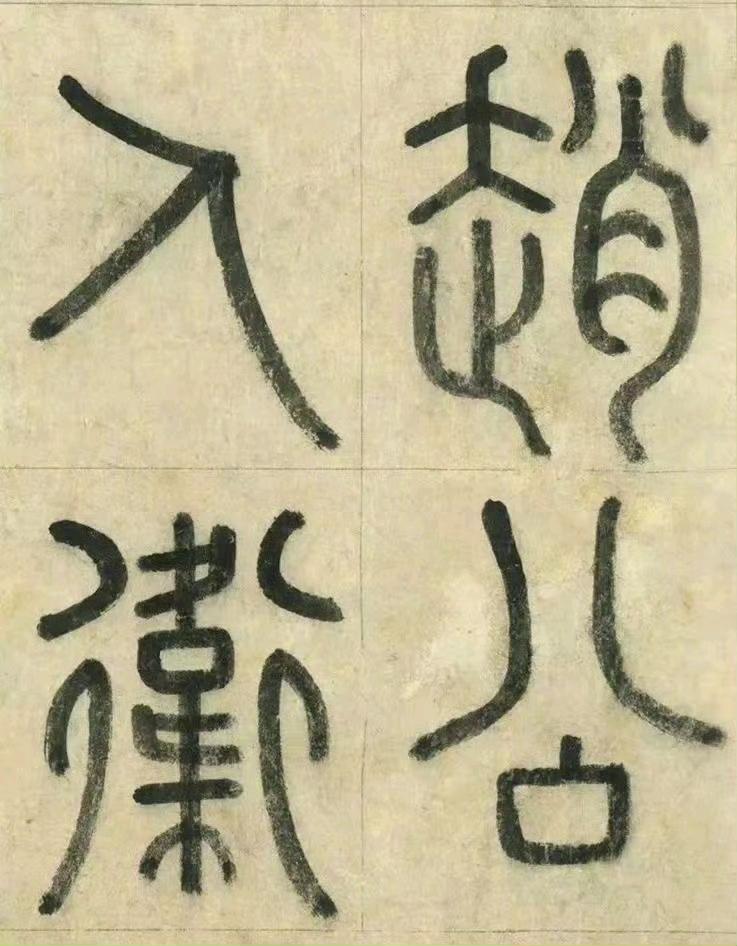 趙公
入衛